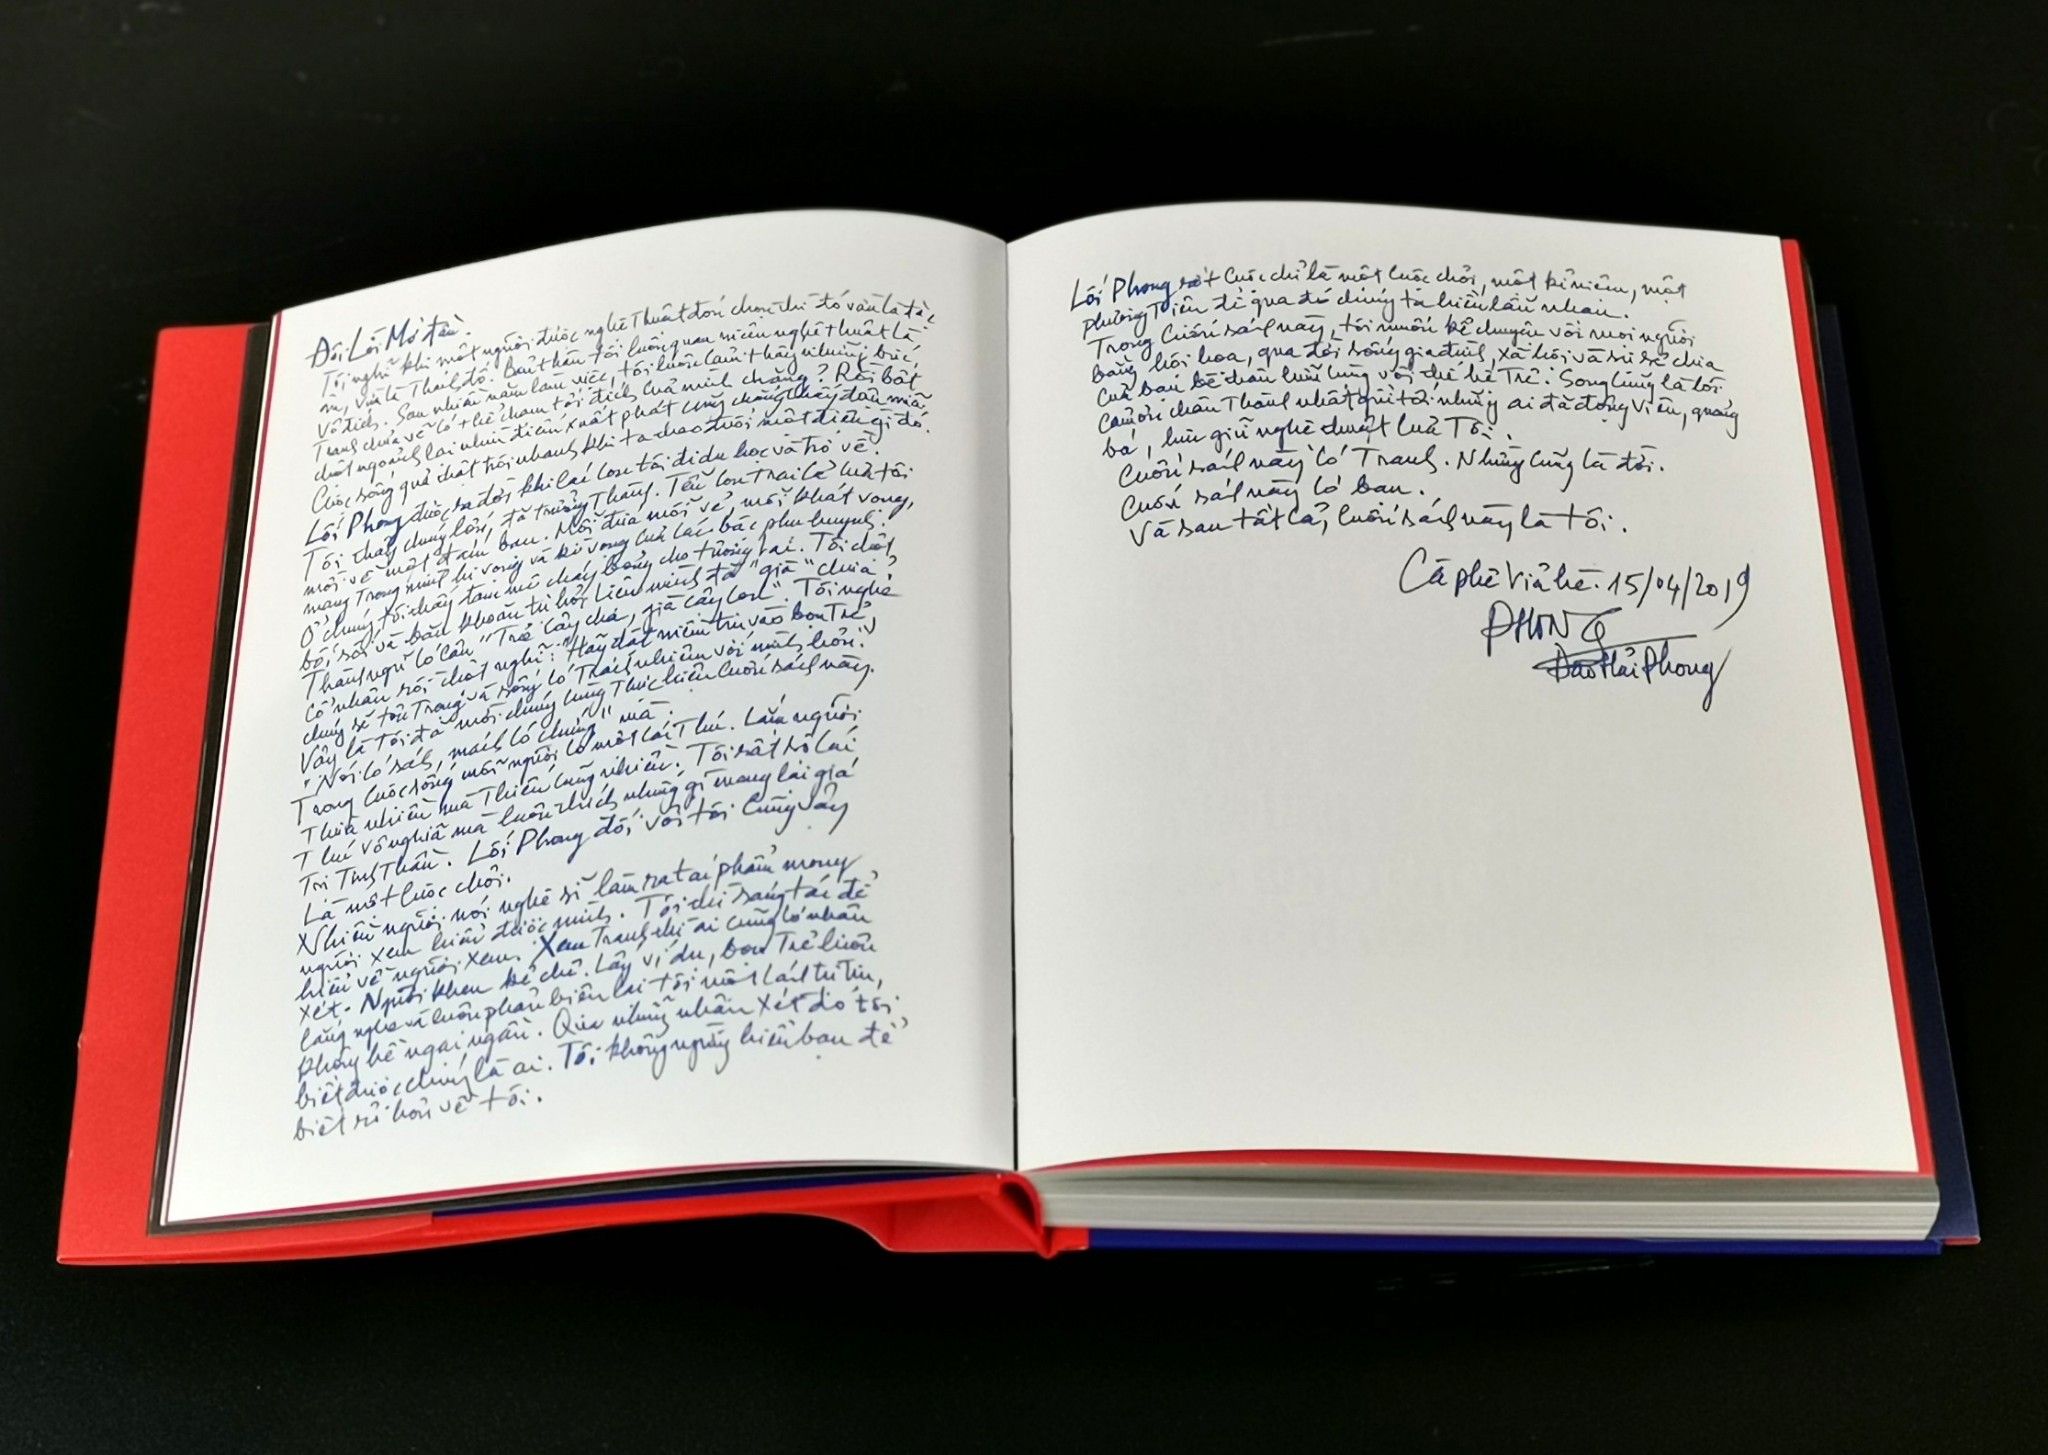 Đôi Lời Mở đầu.
Tôi nghĩ khi một người được nghệ Thuật đón chọn thì đó vừa là đặc
ân, vừa là Thách đố. Bản thân tôi luôn quan niệm nghệ thuật là
Vô đích. Sau nhiều năm làm việc, tôi luôn cảm thấy những bức
Tranh chưa vẽ có thể chạm tới đích của mình chăng? Rồi bất
chợt ngoảnh lại nhìn điểm xuất phát cũng chẳng thấy đâu nữa.
Cuộc sống quả thật trôi nhanh khi ta theo đuổi một điều gì đó.
Lối Phong được ra đời khi các con tôi đi du học và trở về.
Tôi thấy chúng lớn, đã trưởng Thành. Tếu con Trai cả của tôi
mới về một tuần bạn. Mỗi đứa mỗi vẻ, mỗi khát vọng,
mang Trong mình hi vọng và kì vọng của các bậc phụ huynh.
Ở chúng tôi thấy đam mê cháy bỏng cho tương lai. Tôi chợt
bối rối và băn khoăn tự hỏi liệu mình đã "già" chưa?
Thành ngữ có câu "Trẻ cậy cha, già cậy con". Tôi nghe
cô nhân rồi chợt nghĩ: "Hãy đặt niềm tin vào bọn Trẻ,
chúng sẽ tôn Trọng và sống có Trách nhiệm với mình hơn".
Vậy là Tôi đã mời chúng cùng Thực hiện Cuốn sách này.
"Nói có sách, mách có chứng" mà.
Trong Cuộc sống mỗi người có một cái Thú. Lắm người
Thừa nhiều mà Thiếu cũng nhiều. Tôi rất sợ cái
Thú vô nghĩa mà luôn thích những gì mang lại giá
Trị Tinh Thần. Lối Phong đối với tôi Cũng vậy
Là một Cuộc chơi.
Nhiều người nói nghệ sĩ làm ra tác phẩm mong
người xem hiểu được mình. Tôi thì sáng tác để
hiểu về người xem. Xem Tranh thì ai cũng có nhận
xét. Người khen kẻ chê. Lấy ví dụ, bọn Trẻ luôn
lắng nghe và luôn phản biện lại tôi một cách tự tin,
không hề ngại ngần. Qua những nhận xét đó tôi
biết được chúng là ai. Tôi không ngừng hiểu bạn để
biết rõ hơn về tôi.
Lối Phong rốt Cuộc chỉ là một Cuộc chơi, một kỉ niệm, một
phương Tiện để qua đó chúng ta hiểu lẫn nhau.
Trong Cuốn sách này, tôi muốn kể chuyện với mọi người
bằng hội họa, qua đời sống gia đình, xã hội và sự sẻ chia
của bạn bè thân hữu cùng với thế hệ Trẻ. Song cũng là lời
cảm ơn chân Thành nhất gửi tới những ai đã động viên, quảng
bá, lưu giữ nghệ thuật của Tôi.
Cuốn sách này có Tranh. Nhưng cũng là đời.
Cuốn sách này có bạn.
Và sau tất cả, Cuốn sách này là tôi.
Cà phê Vỉa hè. 15/04/2019
PHONG
Đào Hải Phong